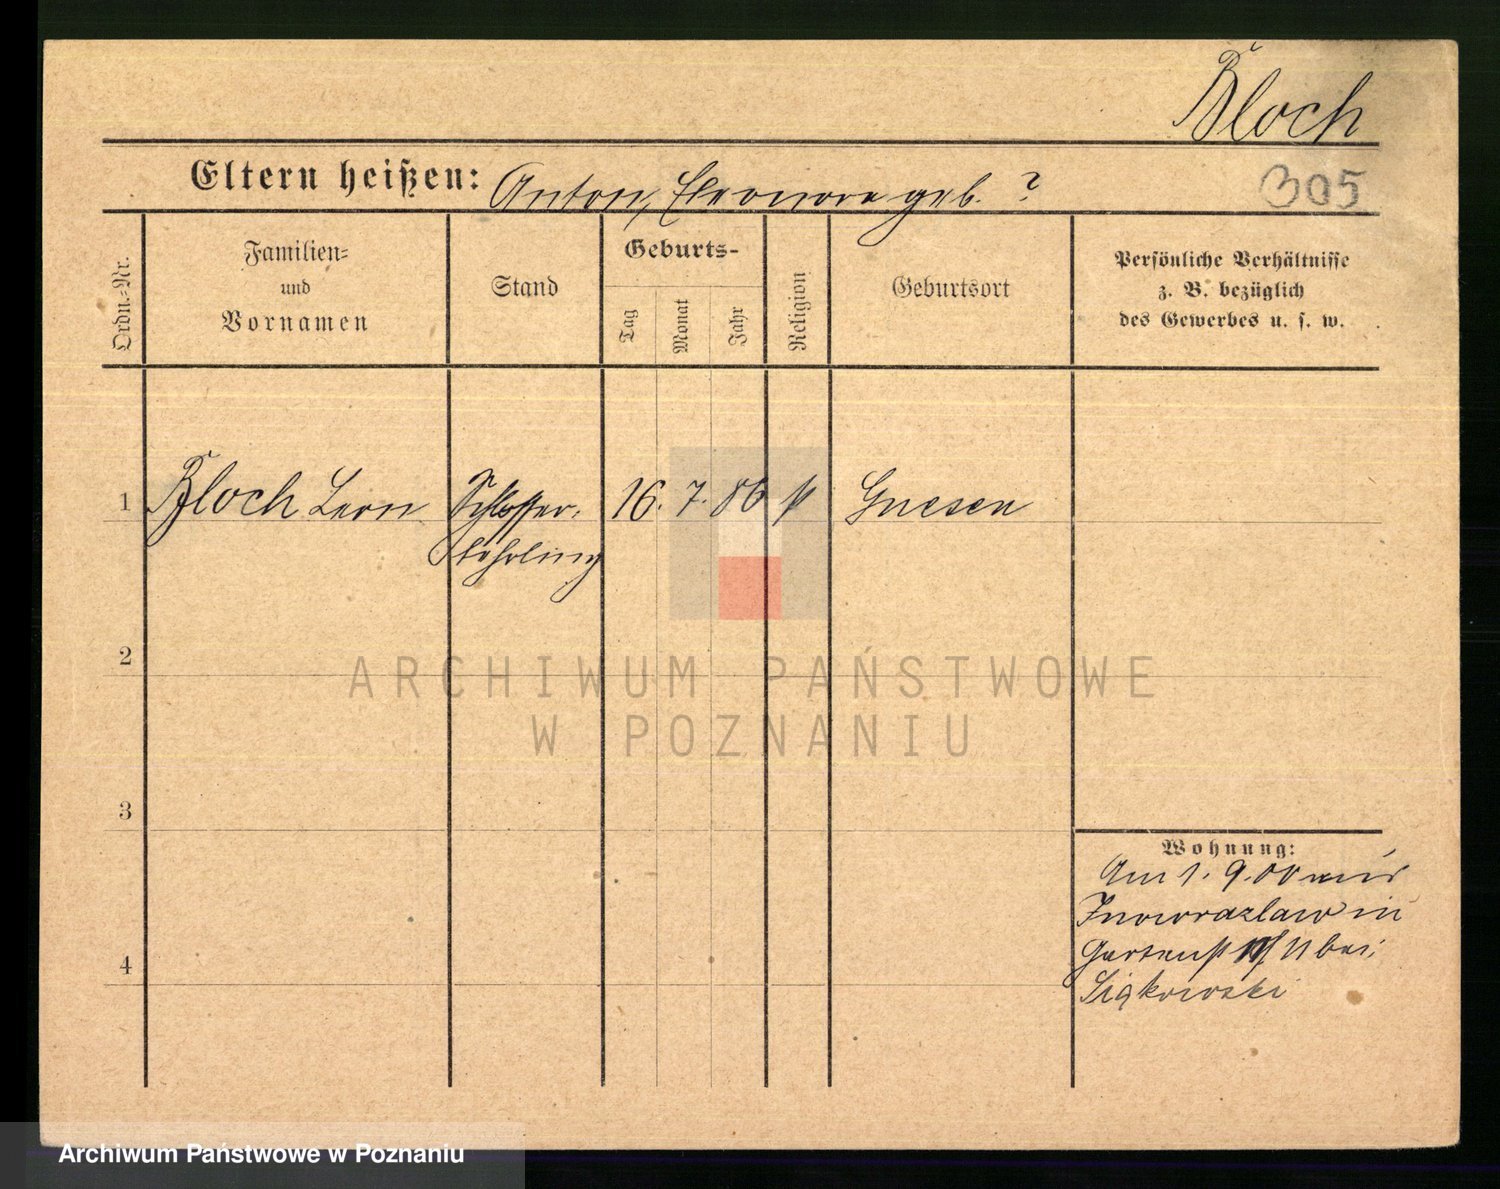 Bloch
Eltern heißen: Anton, Eleonore geb. ?
305
Ordn.-Nr.
Familien-
und
Vornamen
Stand
Geburts-
Tag
Monat
Jahr
Religion
Geburtsort
Persönliche Verhältnisse
z. B. bezüglich
des Gewerbes u. s. w.
1 Bloch Leon Schlosser- 16. 7. 86 k Gnesen
lehrling
2
3
4
Wohnung:
Am 1. 9. 00 aus
Inowrazlaw in
Gartenst 11 bei
ARCHIWUM PAŃSTWOWE
W POZNANIU
Archiwum Państwowe w Poznaniu